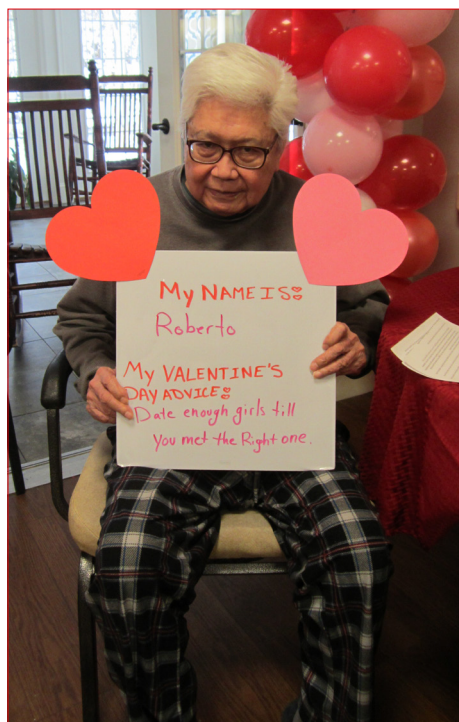 My NAME IS:
Roberto
My VALENTINE'S
DAY ADVICE:
Date enough girls till
you met the Right one.